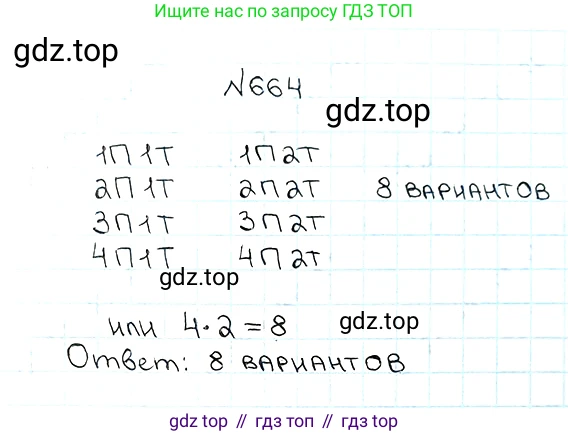 Ищите нас по запросу ГДЗ ТОП
gdz.top
№664
gdz.top
1П 1Т 1П 2Т
2П 1Т 2П 2Т 8 вариантов
3П 1Т 3П 2Т
4П 1Т 4П 2Т
gdz.top
или 4·2=8 gdz.top
Ответ: 8 вариантов
gdz.top // гдз топ // gdz top